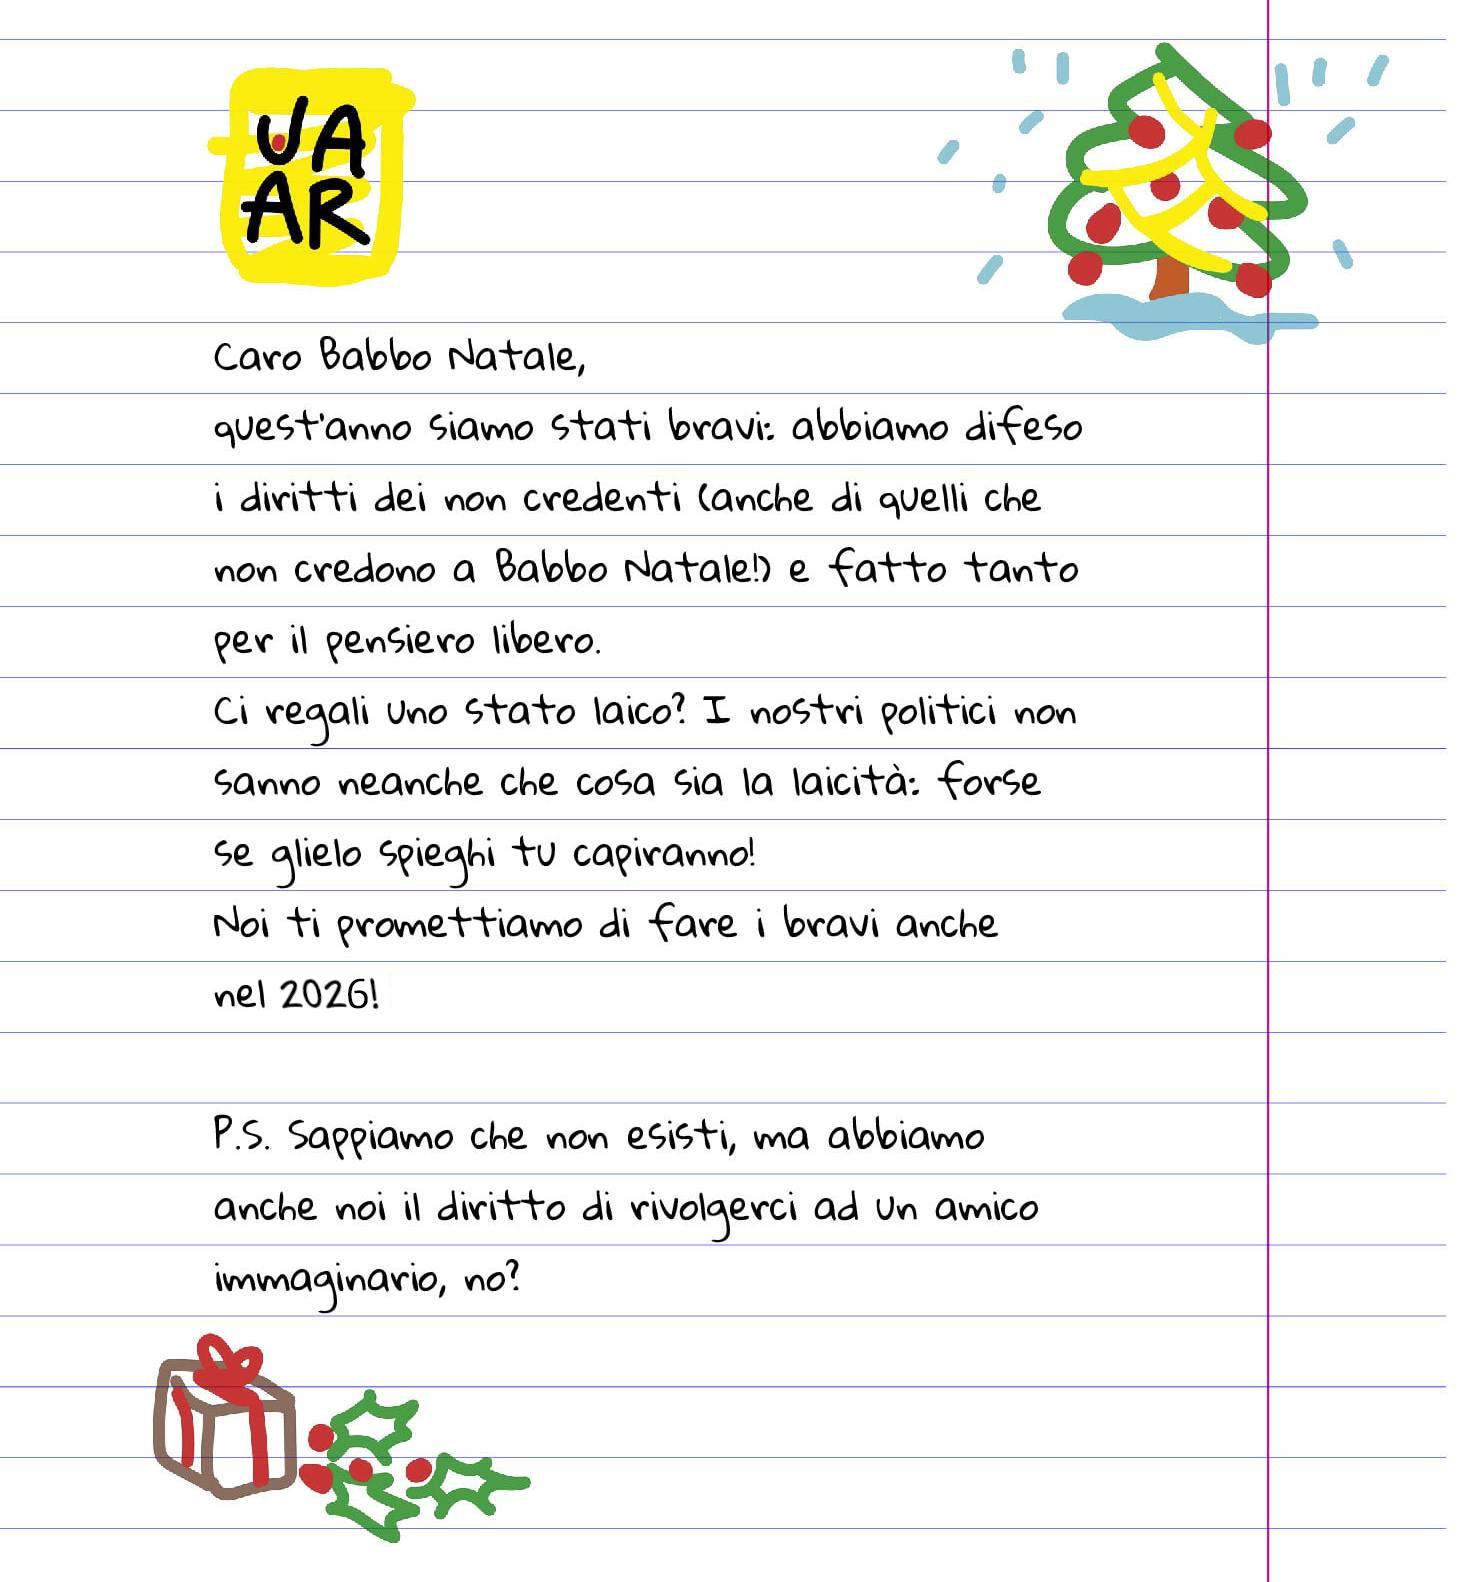 UA
AR
Caro Babbo Natale,
quest'anno siamo stati bravi: abbiamo difeso
i diritti dei non credenti (anche di quelli che
non credono a Babbo Natale!) e fatto tanto
per il pensiero libero.
Ci regali uno stato laico? I nostri politici non
sanno neanche che cosa sia la laicità: forse
se glielo spieghi tu capiranno!
Noi ti promettiamo di fare i bravi anche
nel 2026!
P.S. Sappiamo che non esisti, ma abbiamo
anche noi il diritto di rivolgerci ad un amico
immaginario, no?